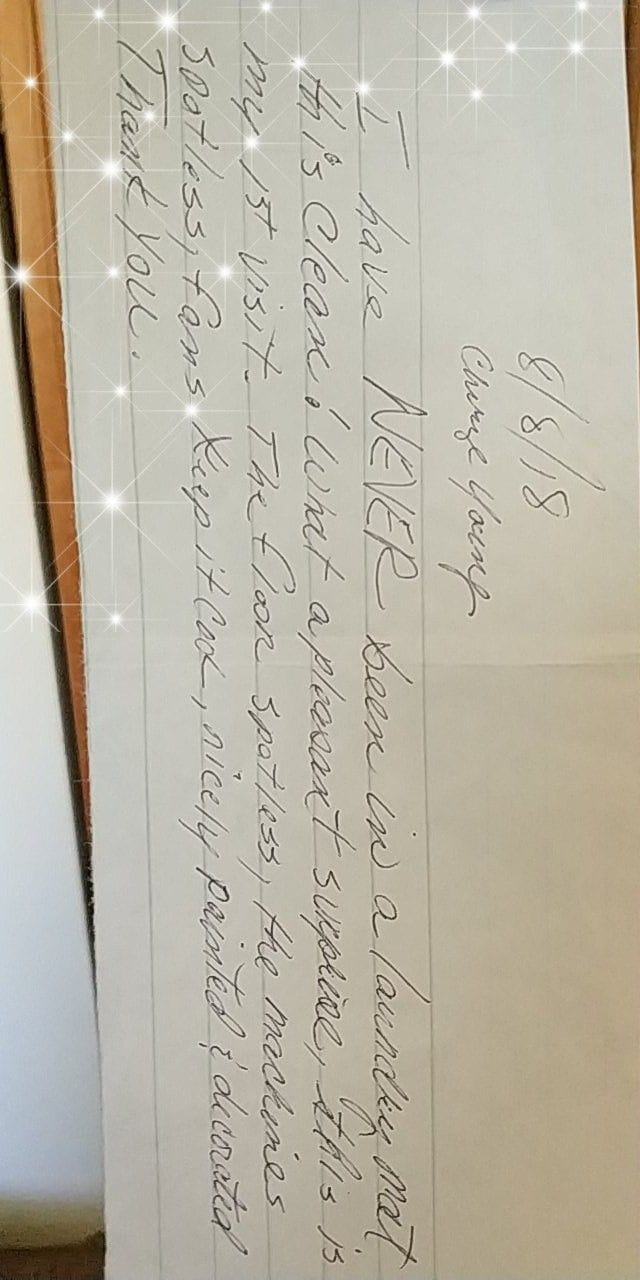 8/8/18
Young
I have NEVER been in a laundry mat
this clean! What a pleasant surprise, this is
my 1st visit. The floor spotless, the machines
spotless, fans keep it cool, nicely painted & decorated
Thank You.